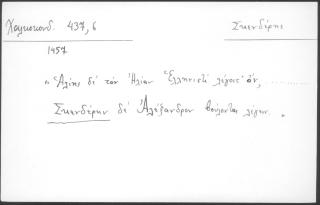 Χαλκοκονδ. 437,6 Σκενδέρης
1457
"Ἀλίης δὲ τὸν Ἠλίαν Ἑλληνιστὶ λέγοιτ' ἄν, ............
Σκενδέρην δὲ Ἀλέξανδρον βούλονται λέγειν.„